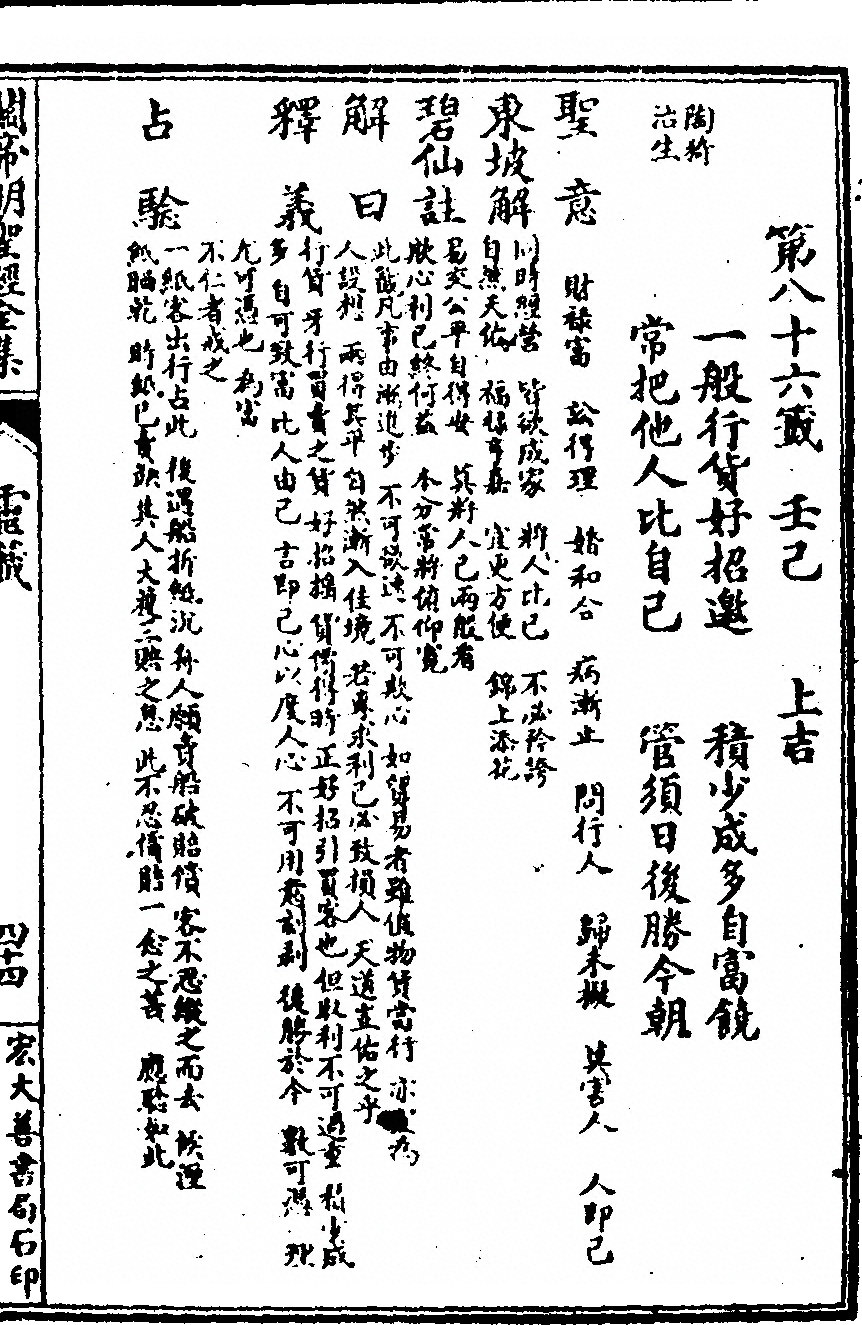 陶朱
治生
第八十六籤 壬己 上吉
一般行貨好招邀 積少成多自富饒
常把他人比自己 管須日後勝今朝
聖意 財祿富 訟得理 婚和合 病漸止 問行人 歸未擬 莫害人 人即己
東坡解 同時經營 皆欲成家 將人比己 不必矜誇
自然天佑 福祿亨嘉 宜更方便 錦上添花
碧仙註 易交公平自得安 莫將人己兩般看
欺心利己終何益 本分常將俯仰寬
解曰 此籤凡事由漸進步 不可欲速 不可欺心 如貿易者雖值物貨當行 亦 為
人設想 兩得其平 自然漸入佳境 若專求利己必致損人 天道豈佑之乎
釋義 行貨 牙行買賣之貨 好招攜 貨價得時 正好招引買客也 但取利不可過重 積少成
多 自可致富 比人由己 言即己心以度人心 不可用意刻剥 後勝於今 數可憑 理
尤可憑也 為富
不仁者戒之
占驗 一紙客出行占此 後遇船折紙沉 舟人願賣船破賠償 客不忍縱之而去 候溼
紙晒乾 時紙已賣缺 其人大獲 此不忍備賠一念之善 應驗如此
關帝明聖經全集
靈籤
四十四
宏大善書局石印